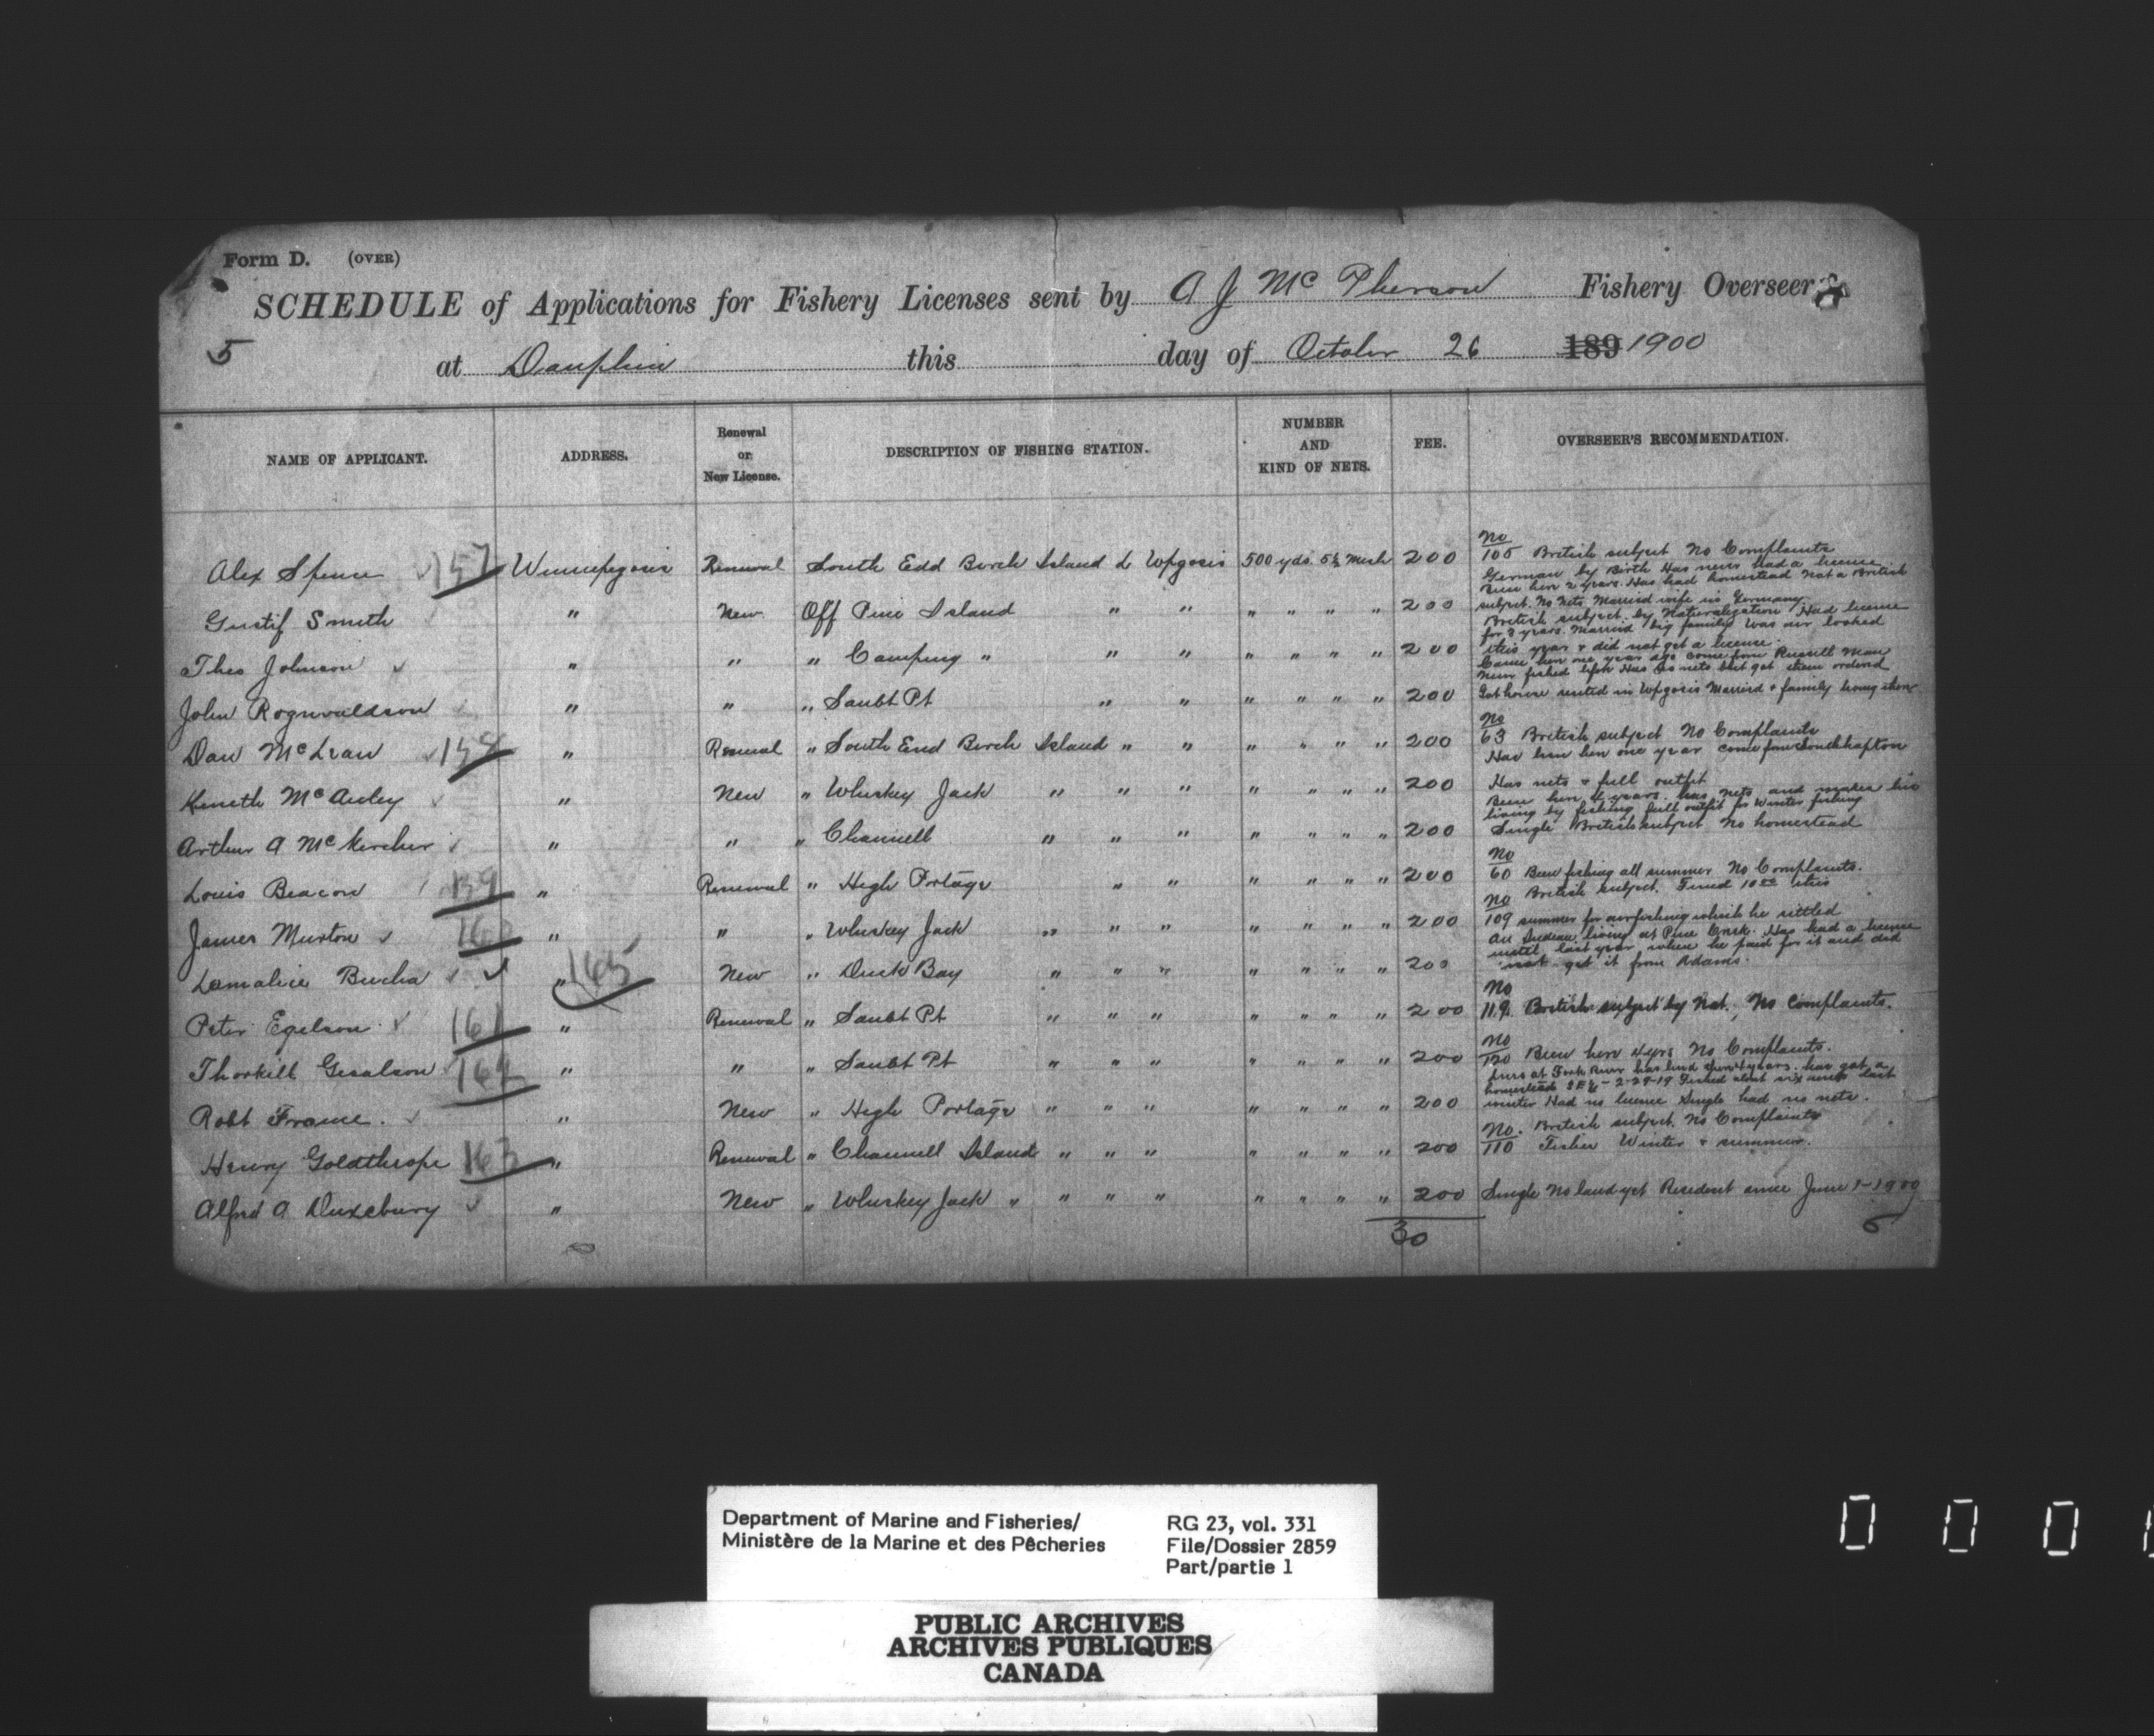 Form D. (OVER)
SCHEDULE of Applications for Fishery Licenses sent by A J McPherson Fishery Overseer
5 at Dauphin this day of October 26 189 1900
NAME OF APPLICANT. ADDRESS. Renewal or New License. DESCRIPTION OF FISHING STATION. NUMBER AND KIND OF NETS. FEE. OVERSEER'S RECOMMENDATION.
Alex Spence 157 Winnipegosis Renewal South End Birch Island L Wpgosis 500 yds. 5½ Mesh 200 No 105 British subject No Complaints
Gustif Smith " New Off Pine Island " " " " " " 200 German by Birth Has never had a licence. Been here 2 years. Has had homestead Not a British subject. No Nets. Married wife in Germany
Theo Johnson " " " Camping " " " " " " " 200 British subject by Naturalization Had licence for 3 years. Married big family Was over looked this year & did not get a licence.
John Rognvaldson " " " Saubt Pt " " " " " " 200 Came here one year ago come from Russell Man Never fished before Has no nets but got them ordered Got house rented in Wpgosis Married & family living there
Dan McLean 158 " Renewal " South End Birch Island " " " " " " 200 No 63 British subject No Complaints
Kenneth McAuley " New " Whiskey Jack " " " " " " " 200 Has been here one year come from Has nets & full outfit
Arthur A McKercher " " " Channell " " " " " " " 200 Been here 4 years. Has nets and makes his living by fishing full outfit for Winter fishing Single British subject No homestead
Louis Beacon 159 " Renewal " High Portage " " " " " " 200 No 60 Been fishing all summer No Complaints.
James Murton 160 " " " Whiskey Jack " " " " " " " 200 No 109 British subject. Fined 10.00 this summer for which he settled
Lamalice Bucha 165 " New " Duck Bay " " " " " " " 200 An Indean living at Pine Creek. Has had a licence until last year when he paid for it and did not get it from Adams.
Peter Egelson 161 " Renewal " Saubt Pt " " " " " " " 200 No 119. British subject by Nat., No Complaints.
Thorkill Gesalson 162 " " " Saubt Pt " " " " " " " 200 No 120 Been here 4 yrs No Complaints.
Robt France. " New " High Portage " " " " " " " 200 Lives at Fork River has lived there 4 years. has got a homestead SE¼-2-29-19 Fished about six last winter Had no licence Single had no nets.
Henry Goldthrope 163 " Renewal " Channell Island " " " " " " " 200 No. 110 British subject. No Complaints Fishes Winter & summer.
Alfred A Duxebury " New " Whiskey Jack " " " " " " " " 200 Single No land yet Resident since June 1-1900
30 6
Department of Marine and Fisheries/
Ministère de la Marine et des Pêcheries
RG 23, vol. 331
File/Dossier 2859
Part/partie 1
PUBLIC ARCHIVES
ARCHIVES PUBLIQUES
CANADA
0 0 0